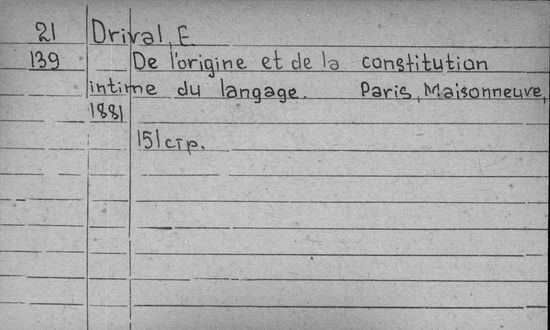 21 Drival, E.
139 De l'origine et de la constitution
intime du langage. Paris, Maisonneuve,
1881
151 стр.